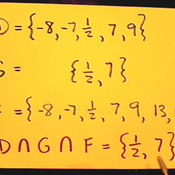 D = {-8, -7, 1/2, 7, 9}
G = {1/2, 7}
= {-8, -7, 1/2, 7, 9, 13,
D ∩ G ∩ F = {1/2, 7}